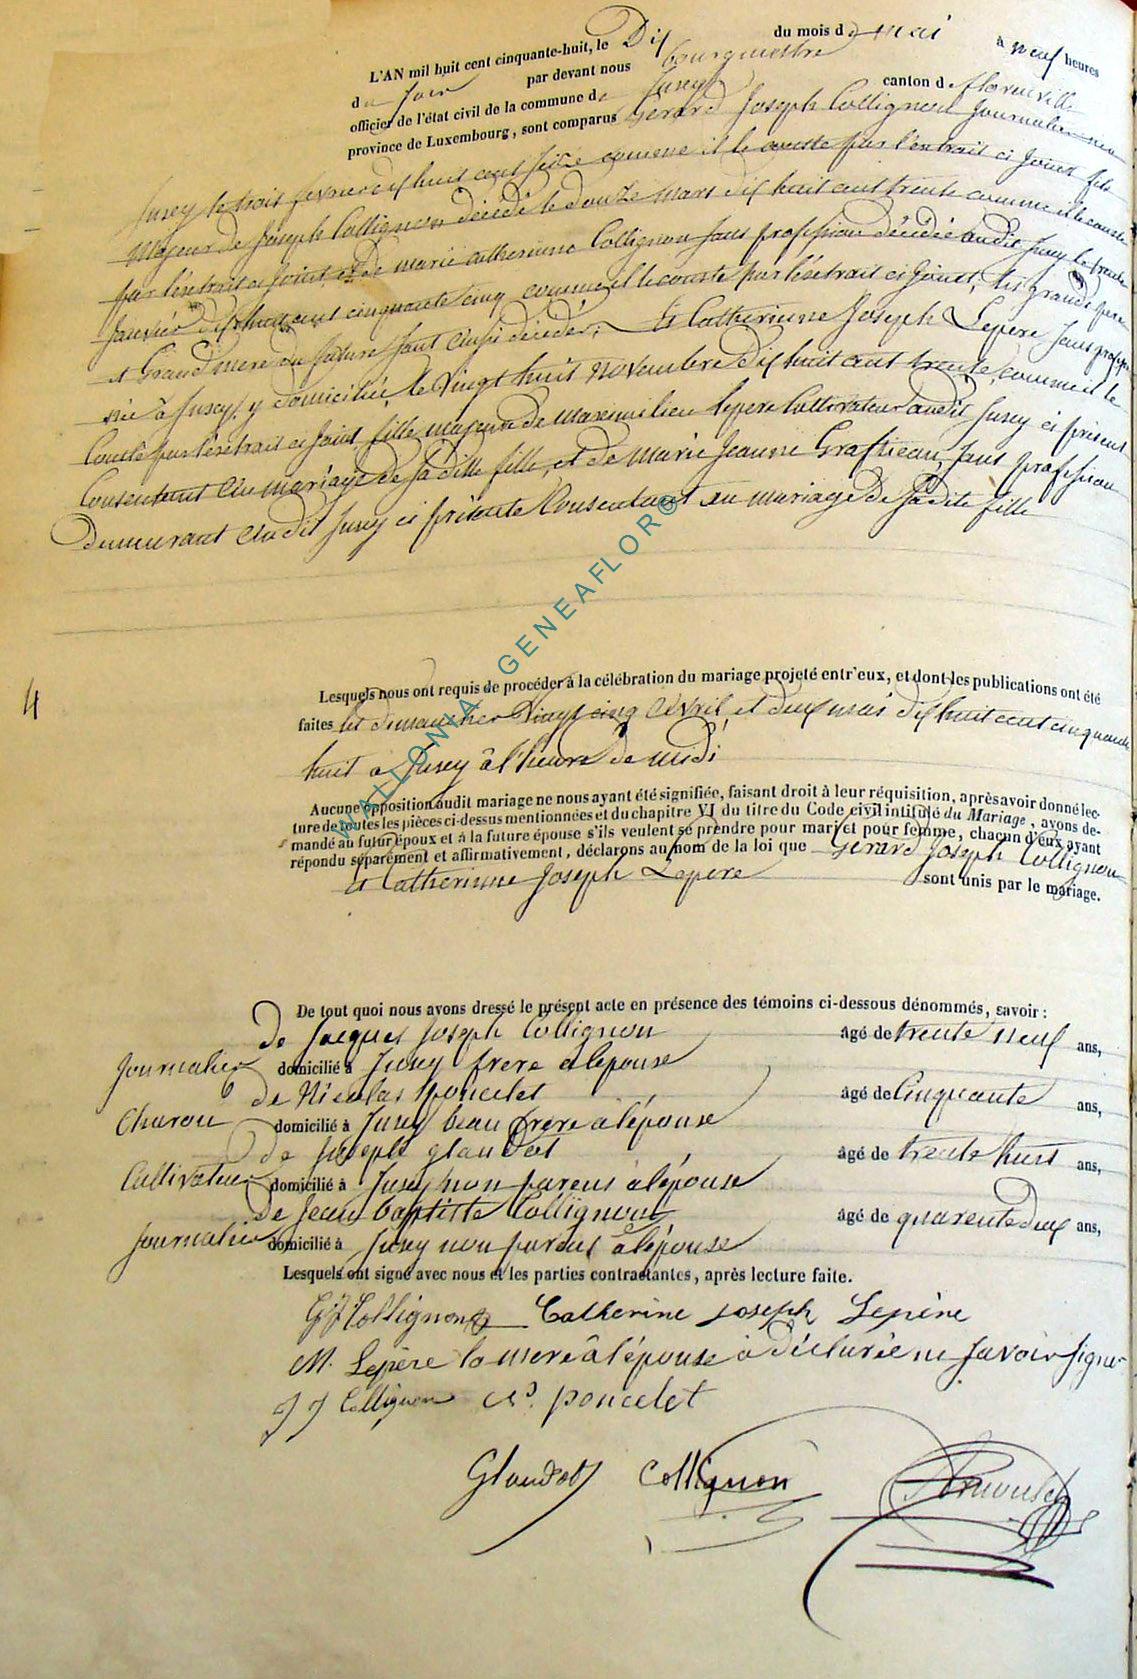 L'AN mil huit cent cinquante-huit, le Dix du mois de mai à neuf heures
du soir par devant nous bourgmestre
officier de l'état civil de la commune de Jusey canton de florenville
province de Luxembourg, sont comparus Gérard Joseph Collignon Journalier né a
Jusey le trois fevrier dix huit cent seize comme il le conste par l'extrait ci joint fils
Majeur de Joseph Collignon décédé le douze mars dix huit cent trente comme il le conste
par l'extrait ci joint, et de marie catherinne Collignon sans profession décédée audit Jusey le trente
Janvier dix huit cent cinquante cinq comme il le conste par l'extrait ci joint, les grands pere
et Grand mere du future sont aussi décédés; Et Catherinne Joseph Lepere sans profession
née à Jusey, y domiciliée, le vingt huit novembre dix huit cent trente, comme il le
Conste par l'extrait ci joint fille majeure de Maximilien lepere Cultivateur audit Jusey ci présent
Consentant au mariage de sa dite fille, et de Marie Jeanne Grafteau, sans profession
demeurant audit Jusey ci présente Consentant au mariage de sa dite fille
4
Lesquels nous ont requis de procéder à la célébration du mariage projeté entr'eux, et dont les publications ont été
faites les dimanches Vingt cinq avril, et deux mai dix huit cent cinquante
huit a Jusey à l'heure de midi
Aucune opposition audit mariage ne nous ayant été signifiée, faisant droit à leur réquisition, après avoir donné lec-
ture de toutes les pièces ci-dessus mentionnées et du chapitre VI du titre du Code civil intitulé du Mariage, avons de-
mandé au futur époux et à la future épouse s'ils veulent se prendre pour mari et pour femme, chacun d'eux ayant
répondu séparément et affirmativement, déclarons au nom de la loi que Gérard Joseph Collignon
Et Catherinne Joseph Lepere sont unis par le mariage.
De tout quoi nous avons dressé le présent acte en présence des témoins ci-dessous dénommés, savoir :
De Jacques Joseph Collignon âgé de trente neuf ans,
Journalier domicilié à Jusey frere a lépouse
de Nicolas poncelet âgé de Cinquante ans,
Charon domicilié à Jusey beau frere a lépouse
de Joseph glaudot âgé de trente huit ans,
Cultivateur domicilié à Jusey non parens à lépouse
de Jean baptiste Collignon âgé de quarente deux ans,
Journalier domicilié à Jusey non parens à lépouse
Lesquels ont signé avec nous et les parties contractantes, après lecture faite.
G J Collignon Catherine Joseph Lepère
M. Lepère la mere à l'épouse a déclarée ne savoir signer
J J Collignon N. poncelet
Glaudot Collignon
WALLONIA GENEAFLOR©